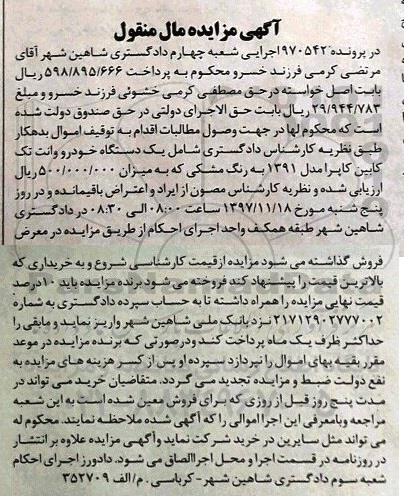 آگهی مزایده مال منقول
در پرونده ۹۷۰۵۴۲ اجرایی شعبه چهارم دادگستری شاهین شهر آقای
مرتضی کرمی فرزند خسرو محکوم به پرداخت ۵۹۸/۸۹۵/۶۶۶ ریال
بابت اصل خواسته در حق مصطفی کرمی خشوئی فرزند خسرو و مبلغ
۲۹/۹۴۴/۷۸۳ ریال بابت حق الاجرای دولتی در حق صندوق دولت شده
است که محکوم لها در جهت وصول مطالبات اقدام به توقیف اموال بدهکار
طبق نظریه کارشناس دادگستری شامل یک دستگاه خودرو وانت تک
کابین کاپرا مدل ۱۳۹۱ به رنگ مشکی که به میزان ۵۰۰/۰۰۰/۰۰۰ ریال
ارزیابی شده و نظریه کارشناس مصون از ایراد و اعتراض باقیمانده و در روز
پنج شنبه مورخ ۱۳۹۷/۱۱/۱۸ ساعت ۰۸:۰۰ الی ۰۸:۳۰ در دادگستری
شاهین شهر طبقه همکف واحد اجرای احکام از طریق مزایده در معرض
فروش گذاشته می شود مزایده از قیمت کارشناسی شروع و به خریداری که
بالاترین قیمت را پیشنهاد کند فروخته می شود برنده مزایده باید ۱۰ درصد
قیمت نهایی مزایده را همراه داشته تا به حساب سپرده دادگستری به شماره
۲۱۷۱۲۹۰۲۷۷۷۰۰۲ نزد بانک ملی شاهین شهر واریز نماید و مابقی را
حداکثر ظرف یک ماه پرداخت کند و درصورتی که برنده مزایده در موعد
مقرر بقیه بهای اموال را نپردازد سپرده او پس از کسر هزینه های مزایده به
نفع دولت ضبط و مزایده تجدید می گردد. متقاضیان خرید می تواند در
مدت پنج روز قبل از روزی که برای فروش معین شده است به این شعبه
مراجعه و بامعرفی این اجرا اموالی را که آگهی شده ملاحظه نمایند. محکوم له
می تواند مثل سایرین در خرید شرکت نماید و آگهی مزایده علاوه بر انتشار
در روزنامه در قسمت اجرا و محل اجرا الصاق می شود. دادورز اجرای احکام
شعبه سوم دادگستری شاهین شهر - کرباسی . م/الف ۳۵۲۷۰۹